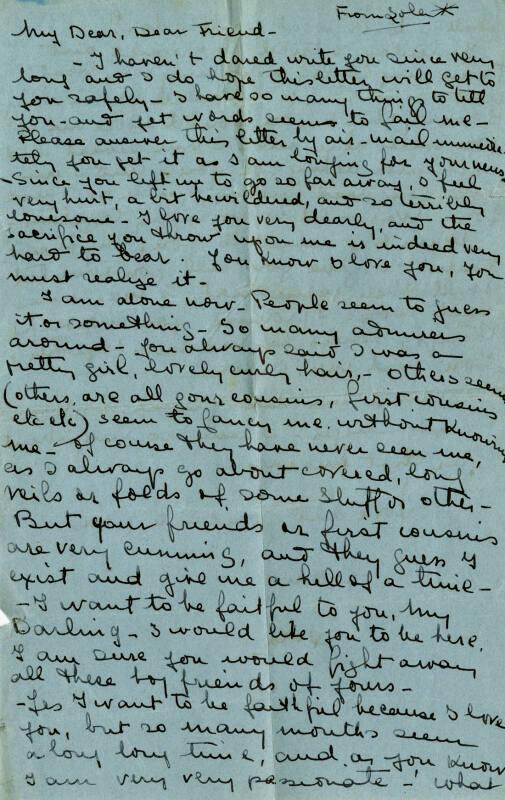 From Soler*
My Dear, Dear Friend -
- I haven't dared write you since very
long and I do hope this letter will get to
you safely - I have so many things to tell
you - and yet words seems to fail me -
Please answer this letter by air-mail immedia-
tely you get it as I am longing for your news
- Since you left me to go so far away, I feel
very hurt, a bit bewildered, and so terribly
lonesome - I love you very dearly, and the
sacrifice you throw upon me is indeed very
hard to bear. You know I love you, you
must realize it -
I am alone now - People seem to guess
it or something - So many admirers
around - you always said I was a
pretty girl, lovely curly hair, - others seem
(others, are all your cousins, first cousins
etc etc) seem to fancy me. without knowing
me - of course they have never seen me,
as I always go about covered, long
veils or folds of some stuff or other -
But your friends or first cousins
are very cunning, and they guess I
exist and give me a hell of a time -
- I want to be faithful to you, my
Darling - I would like you to be here.
I am sure you would fight away
all these boy friends of yours -
- Yes I want to be faithful because I love
you, but so many months seem
a long long time, and as you know
I am very very passionate - what